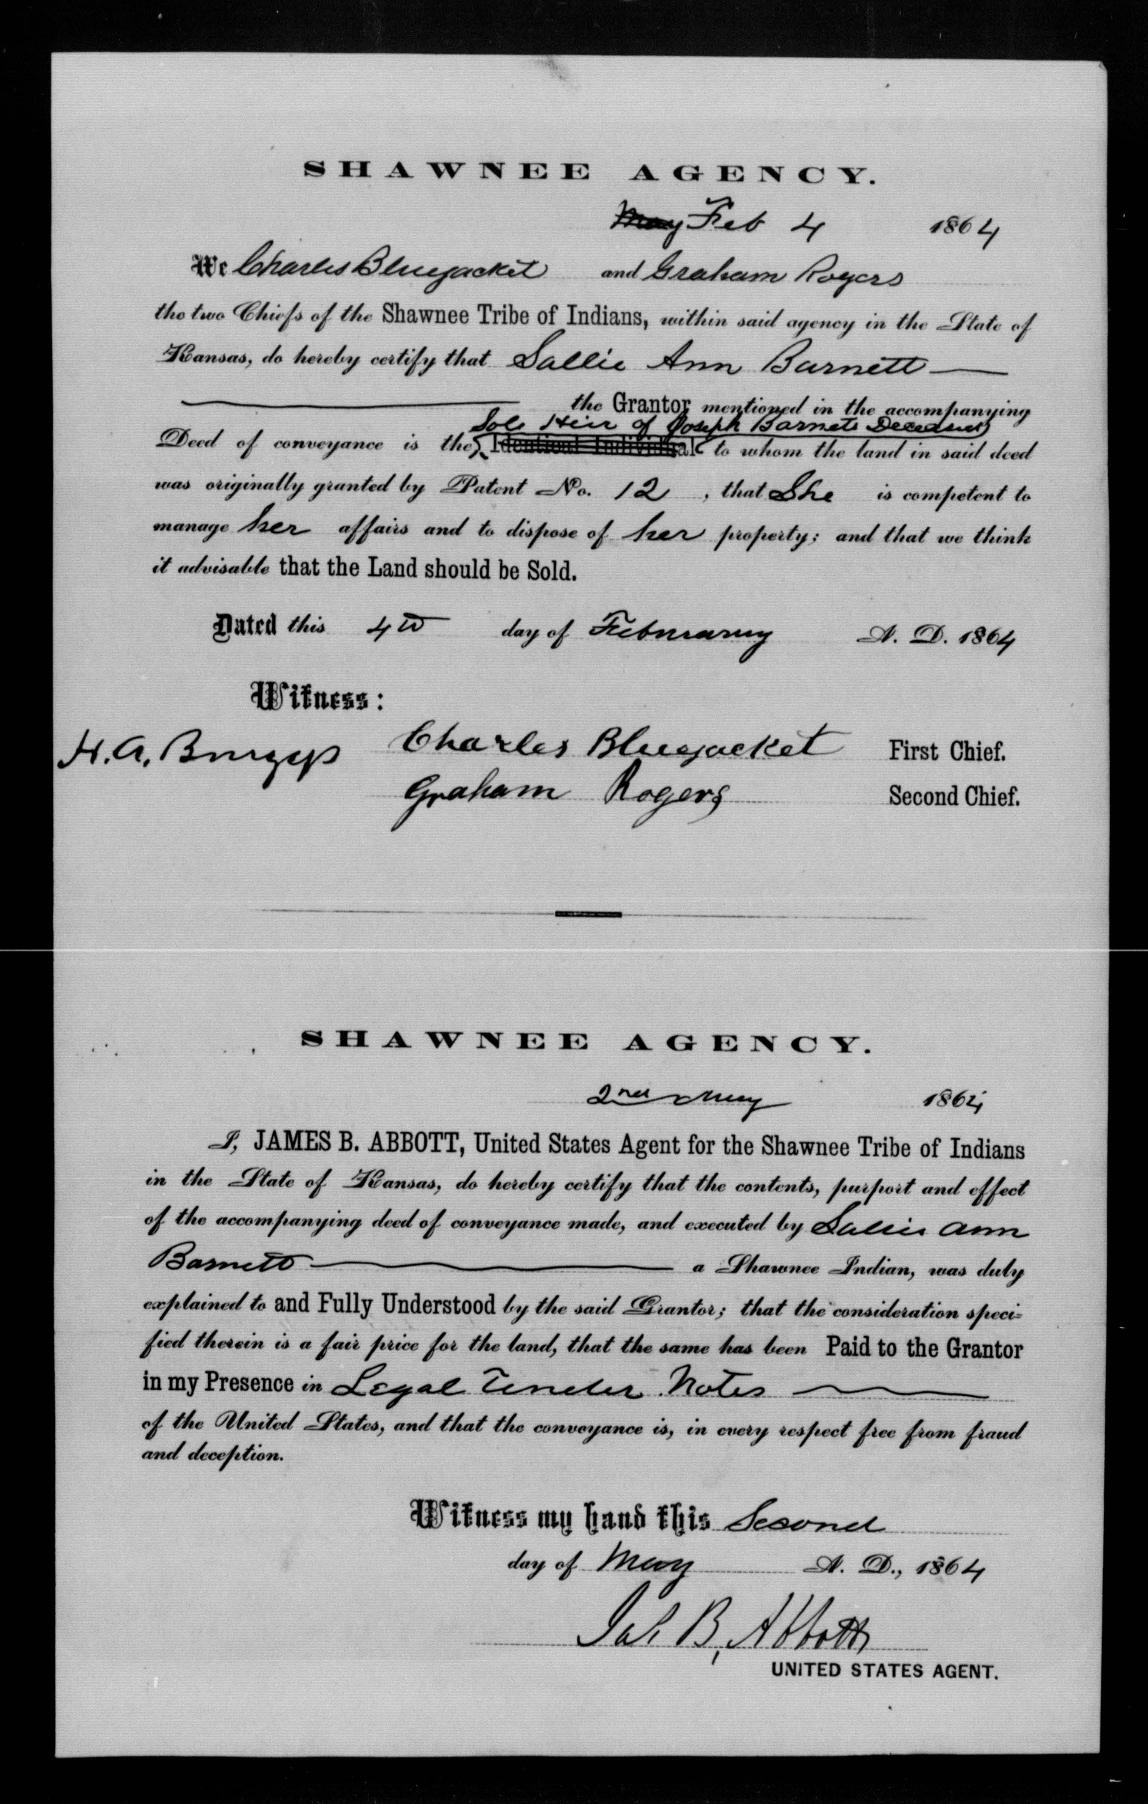 SHAWNEE AGENCY.
May Feb 4 1864
We Charles Bluejacket and Graham Rogers
the two Chiefs of the Shawnee Tribe of Indians, within said agency in the State of
Kansas, do hereby certify that Sallie Ann Barnett
the Grantor mentioned in the accompanying
Sole Heir of Joseph Barnett Deceased
Deed of conveyance is the Identical Individual to whom the land in said deed
was originally granted by Patent No. 12, that She is competent to
manage her affairs and to dispose of her property; and that we think
it advisable that the Land should be Sold.
Dated this 4th day of February A. D. 1864
Witness:
H. A. Charles Bluejacket First Chief.
Graham Rogers Second Chief.
SHAWNEE AGENCY.
2nd May 1864
I, JAMES B. ABBOTT, United States Agent for the Shawnee Tribe of Indians
in the State of Kansas, do hereby certify that the contents, purport and effect
of the accompanying deed of conveyance made, and executed by Sallie Ann
Barnett a Shawnee Indian, was duly
explained to and Fully Understood by the said Grantor; that the consideration speci=
fied therein is a fair price for the land, that the same has been Paid to the Grantor
in my Presence in Legal Tender Notes
of the United States, and that the conveyance is, in every respect free from fraud
and deception.
Witness my hand this Second
day of May A. D., 1864
Jas. B. Abbott
UNITED STATES AGENT.